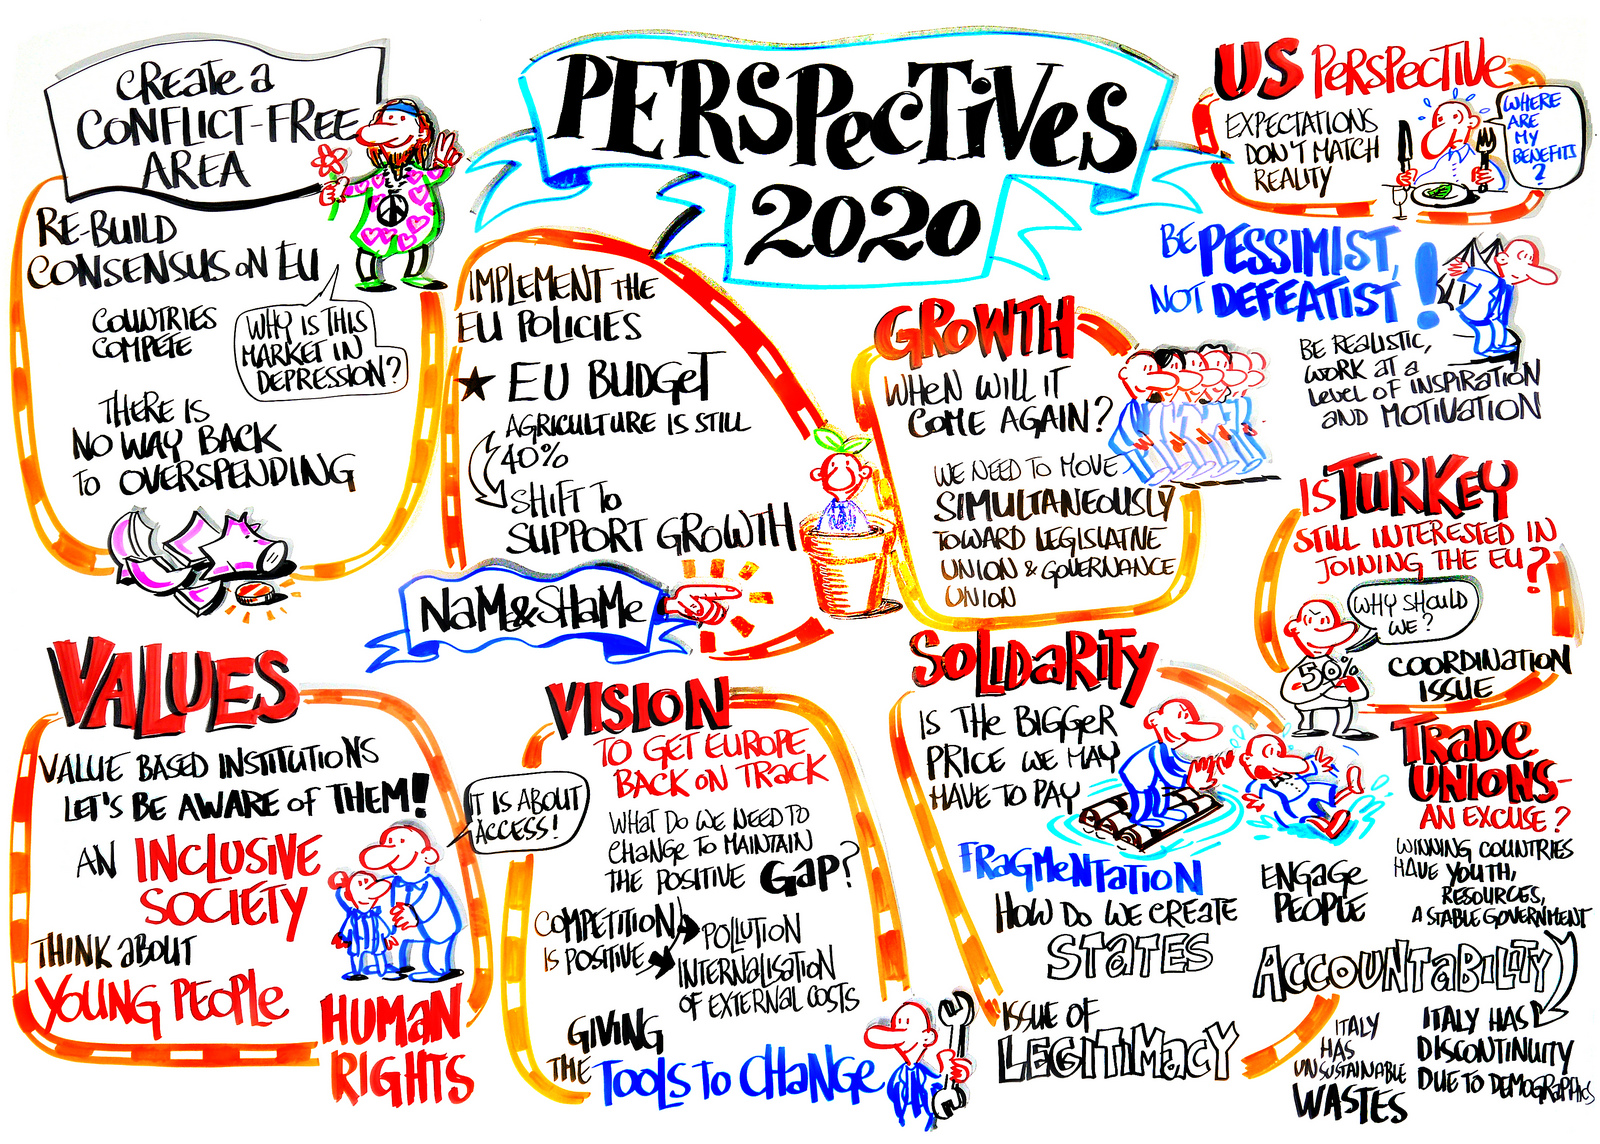 PERSPECTIVES
2020
CREATE A
CONFLICT-FREE
AREA
RE-BUILD
CONSENSUS ON EU
COUNTRIES
COMPETE
WHY IS THIS
MARKET IN
DEPRESSION?
THERE IS
NO WAY BACK
TO OVERSPENDING
IMPLEMENT THE
EU POLICIES
★ EU BUDGET
AGRICULTURE IS STILL
40%
SHIFT TO
SUPPORT GROWTH
NAME & SHAME
GROWTH
WHEN WILL IT
COME AGAIN?
WE NEED TO MOVE
SIMULTANEOUSLY
TOWARD LEGISLATIVE
UNION & GOVERNANCE
UNION
US PERSPECTIVE
EXPECTATIONS
DON'T MATCH
REALITY
WHERE
ARE
MY
BENEFITS
?
BE PESSIMIST,
NOT DEFEATIST!
BE REALISTIC,
WORK AT A
LEVEL OF INSPIRATION
AND MOTIVATION
IS TURKEY
STILL INTERESTED IN
JOINING THE EU?
WHY SHOULD
WE?
50%
COORDINATION
ISSUE
VALUES
VALUE BASED INSTITUTIONS
LET'S BE AWARE OF THEM!
AN INCLUSIVE
SOCIETY
THINK ABOUT
YOUNG PEOPLE
IT IS ABOUT
ACCESS!
HUMAN
RIGHTS
VISION
TO GET EUROPE
BACK ON TRACK
WHAT DO WE NEED TO
CHANGE TO MAINTAIN
THE POSITIVE GAP?
COMPETITION
IS POSITIVE
POLLUTION
INTERNALISATION
OF EXTERNAL COSTS
GIVING
THE TOOLS TO CHANGE
SOLIDARITY
IS THE BIGGER
PRICE WE MAY
HAVE TO PAY
FRAGMENTATION
HOW DO WE CREATE
STATES
ISSUE OF
LEGITIMACY
ENGAGE
PEOPLE
TRADE
UNIONS-
AN EXCUSE?
WINNING COUNTRIES
HAVE YOUTH,
RESOURCES,
A STABLE GOVERNMENT
ACCOUNTABILITY
ITALY
HAS
UNSUSTAINABLE
WASTES
ITALY HAS
DISCONTINUITY
DUE TO DEMOGRAPHICS